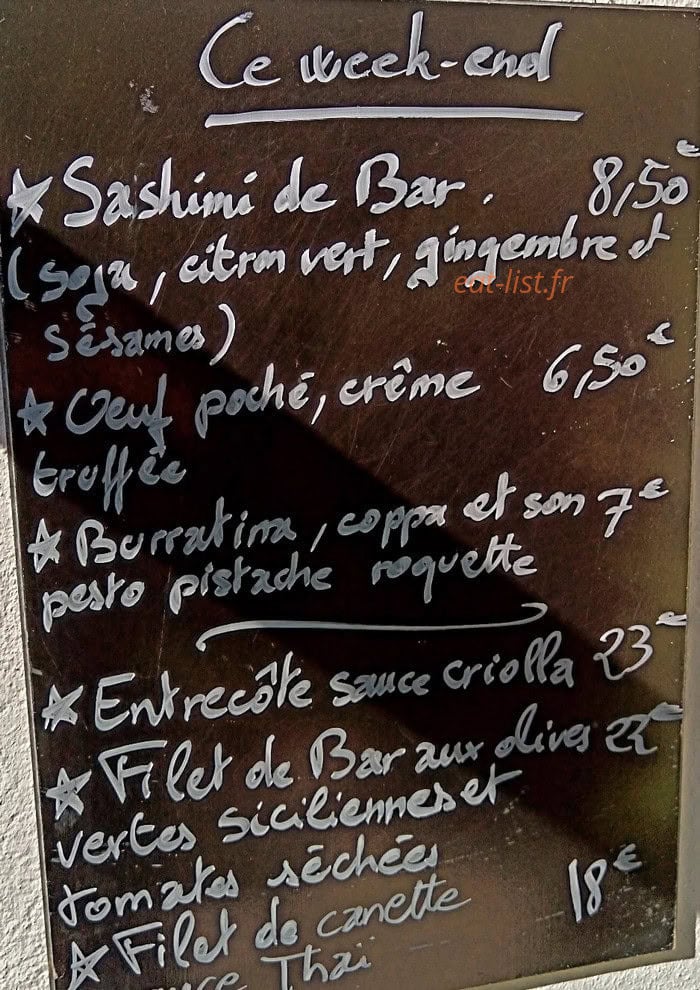 Ce week-end
★ Sashimi de Bar. 8,50€
(soja, citron vert, gingembre et
eat-list.fr
sésames)
★ Oeuf poché, crême 6,50€
truffée
★ Burratina, coppa et son 7€
pesto pistache roquette
★ Entrecôte sauce criolla 23€
★ Filet de Bar aux olives 22€
vertes siciliennes et
tomates séchées
★ Filet de canette 18€
Thaï